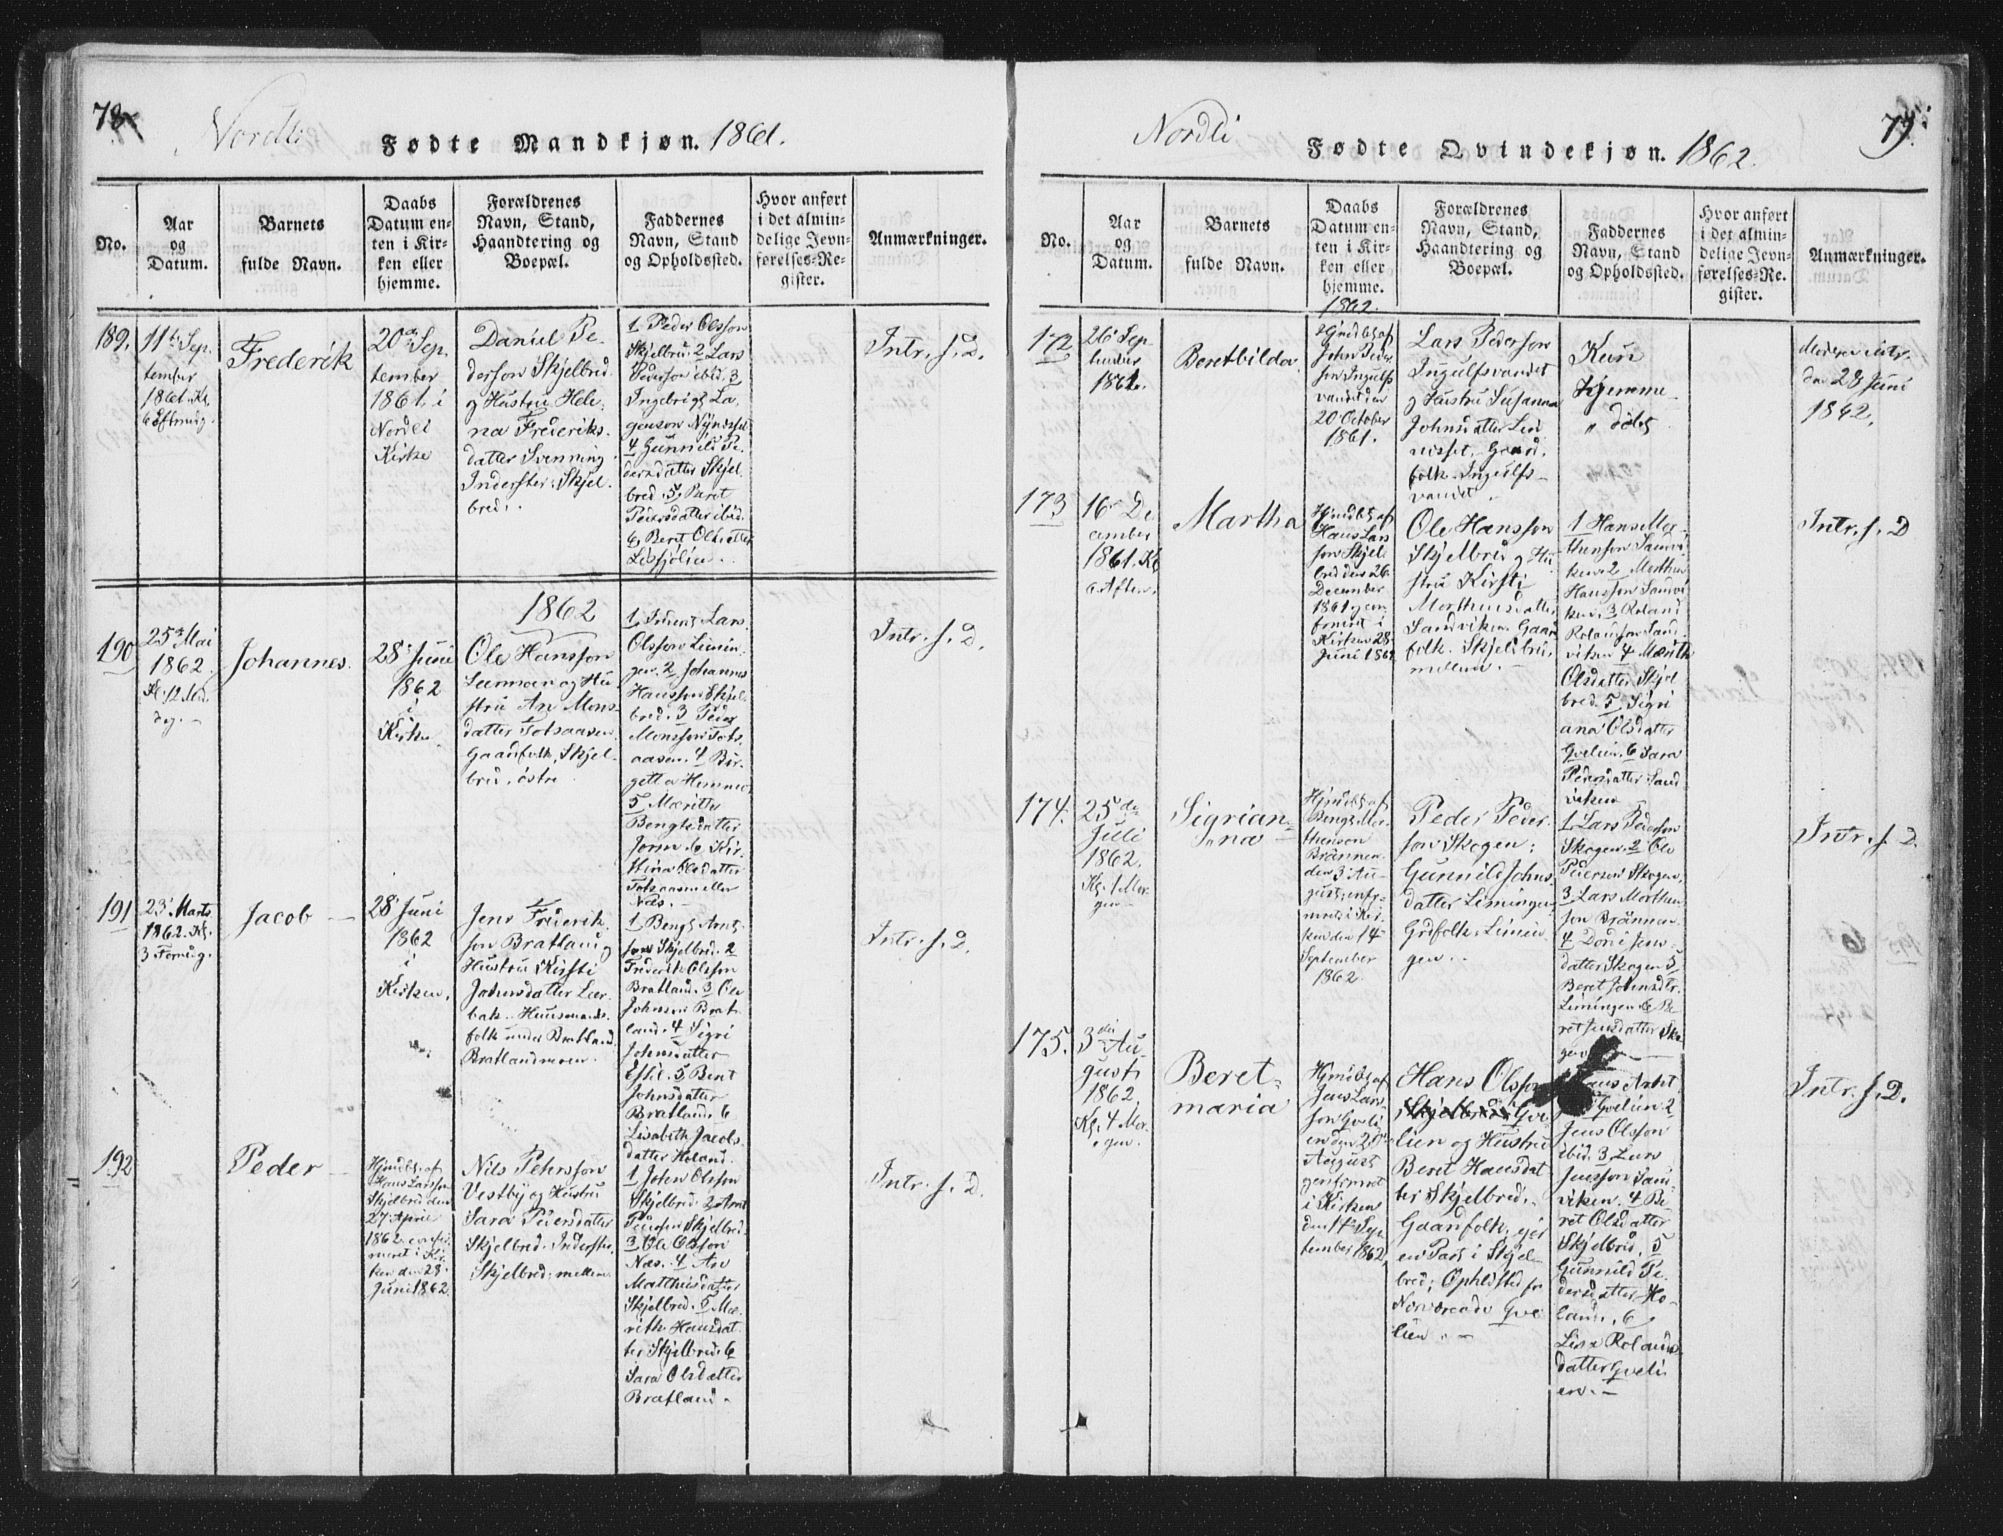 78
Nordli
Fødte Mandkjøn. 1861.
No.
Aar
og
Datum.
Barnets
fulde Navn.
Daabs
Datum en-
ten i Kir-
ken eller
hjemme.
Forældrenes
Navn, Stand,
Haandtering og
Boepæl.
Faddernes
Navn, Stand
og Opholdssted.
Hvor anført
i det almin-
delige Jevn-
førelses-Re-
gister.
Anmærkninger.
189.
11te Sep
tember
1861. Kl.
6 Eftmidg.
Frederik
20de Sep
tember
1861, i
Nordli
Kirke
Daniel Pe-
dersøn Skjelbred
og Hustru Hele-
na Frederiks-
datter Svenning
Inderster Skjel-
bred.
1 Peder Olsson
Skjelbred. 2 Lars
Pedersøn ibid. 3
Ingebrigt La-
4 Gunnild Pe-
dersdatter Skjel
bred. 5, Beret
Pedersdatter ibid.
6, Beret Olsdatter
Intr. s. D.
1862
190
25de Mai
1862.
Kl. 12 Mid
dag.
Johannes.
28de Juni
1862
i
Kirken
Ole Hansson
og Hu
stru An Mons-
datter Totsaasen
Gaardfolk, Skjel-
bred, østre
Olsson Limin-
gen. 2 Johannes
Hanssøn Skjel-
bred. 3 Peder
Monssøn Tots-
aasen. 4 Bir-
5 Mærithe
Bengtsdatter
Jorm. 6 Kir-
stina Olsdatter
Totsaasen eller
Næs.
Intr. s. D.
191
23de Marts
1862. Kl.
3 Formidg.
Jacob
28de Juni
1862
i
Kirken.
Jens Frederik-
søn Bratland og
Hustru Kirsti
Johnsdatter Leer-
bak. Huusmands-
folk under Bratland
Bratlandmoen.
1 Bengt Arnt-
søn Skjelbred. 2
Frederik Olsson
Bratland. 3 Ole
Johnsøn Brat-
land. 4 Sigri
Johnsdatter
Estil. 5 Beret
Johnsdatter
Bratland. 6
Lisabeth Jacobs-
datter Holand.
Intr. s. D.
192
Peder
Hjmdbt. af
Hans Larsson
Skjelbred den
27 April
1862. confir
meret i Kir
ken den 28
Juni 1862.
Nils Pehrsson
Vestby og Hustru
Sara Pedersdatter
Skjelbred. Inderster,
Skjelbred, mellem
1 John Olsson
Skjelbred. 2 Arnt
Pedersen Skjelbred
3 Ole Olsson
Næs. 4 An
Matthisdatter
Skjelbred. 5 Mæ-
rith Hansdat-
ter Skjelbred. 6
Sara Olsdatter
Bratland.
Intr. s. D.
79.
Nordli
Fødte Qvindekjøn. 1862.
No.
Aar
og
Datum.
Barnets
fulde Navn.
Daabs
Datum en-
ten i Kir-
ken eller
hjemme.
Forældrenes
Navn, Stand,
Haandtering og
Boepæl.
Faddernes
Navn, Stand
og Opholdssted.
Hvor anført
i det almin-
delige Jevn-
førelses-Re-
gister.
Anmærkninger.
1862.
172
26de Sep
tember
1861.
Beretbilda.
Hjmdbt af
John Peder
søn Ingulfs
vandet den
20 October
1861.
Lars Pederson
Ingulfsvandet
og Hustru Susanna
Johnsdatter
Gaard-
folk. Ingulfs-
vandet.
Kun
Hjemme-
døbt
Moderen intr.
den 28 Juni
1862.
173
16de De
cember
1861. Kl.
6 Aften.
Martha
Hjmdbt af
Hans Lars
søn Skjel
bred den 26
December
1861, con
firmert i
Kirken 28
Juni 1862
Ole Hansson
Skjelbred og Hu
stru Kirsti
Morthensdatter
Sandviken. Gaard
folk. Skjelbred,
mellem.
1 Hans Mor-
thenson Sandvi-
ken. 2 Morthen
Hansson Sandvi
ken. 3 Roland
Rolandsøn Sand-
viken 4 Mærith
Olsdatter Skjel
bred. 5 Sigri
ana Olsdatter
Gvelien. 6 Sara
Pedersdatter Sand
viken
Intr. s. D
174.
25de
Juli
1862.
Kl. 1 Mor-
gen
Sigrian-
na
Hjmdbt af
Bengt Mor-
thenson
Brännen
den 3 Au-
gust,
met i Kir-
ken den 14
September
1862.
Peder Peder-
søn Skogen,
Gunnild Johns-
datter Limingen
Grdfolk. Limin-
gen.
1 Lars Pederson
Skogen. 2 Ole
Pederson Skogen,
3 Lars Morthen
søn Brännen
4 Dorit Jens-
datter Skogen 5
Beret Johnsdtr.
Limingen. 6 Be
ret Jensdatter Sko
gen
Intr. s. D.
175.
3die Au-
gust
1862
Kl. 4 Mor-
gen.
Beret-
maria
Hjmdbt af
Jens Lars
søn Gveli
en den 24de
August
igjenfirmet
i Kirken
den 14 Sep
tember 1862,
Hans Olsson
Gve
lien og Hustru
Beret Hansdat
ter Skjelbred.
Gaardfolk, ejer
en Part i Skjel
bred, Opholdsted for
Nærværende Gve
lien.
Gvelien 2
Jens Olsson
ibid. 3 Lars
Jensson Sand
viken. 4 Be-
ret Olsdatter
Skjelbred. 5
Gunnild Pe-
dersdatter Ho-
land. 6
Lisa Rolands
datter Gveli
en.
Intr. s. D.